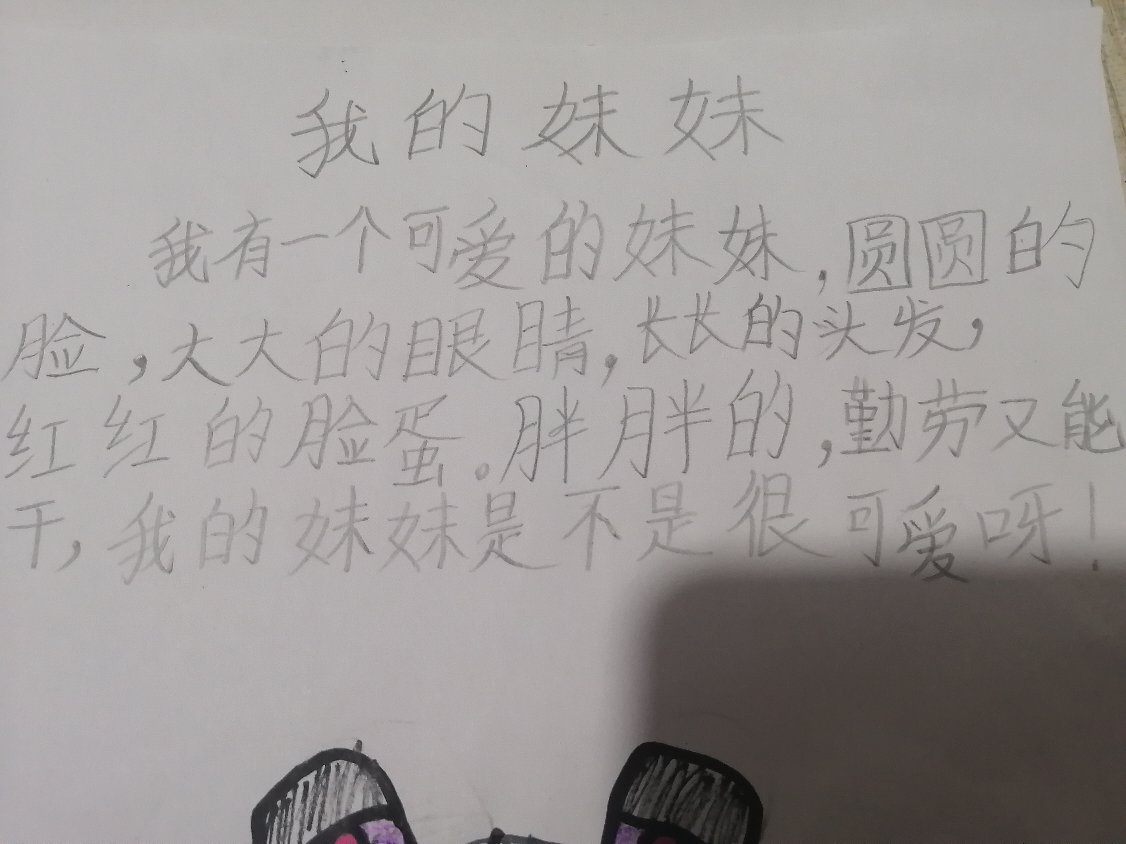 我的妹妹
我有一个可爱的妹妹,圆圆的
脸,大大的眼睛,长长的头发,
红红的脸蛋。胖胖的,勤劳又能
干,我的妹妹是不是很可爱呀!